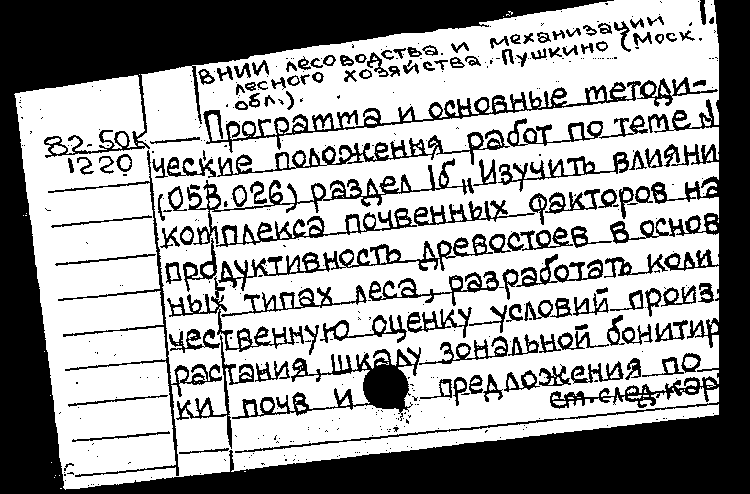 1.
ВНИИ лесоводства и механизации
лесного хозяйства. Пушкино (Моск.
обл.).
82-50К
1220
Программа и основные методи-
ческие положения работ по теме №
(053.026) раздел 1б „Изучить влияни
комплекса почвенных факторов на
продуктивность древостоев в основ
ных типах леса, разработать коли
чественную оценку условий произ
растания, шкалу зональной бонитир
ки почв и предложения по
см.след.кар